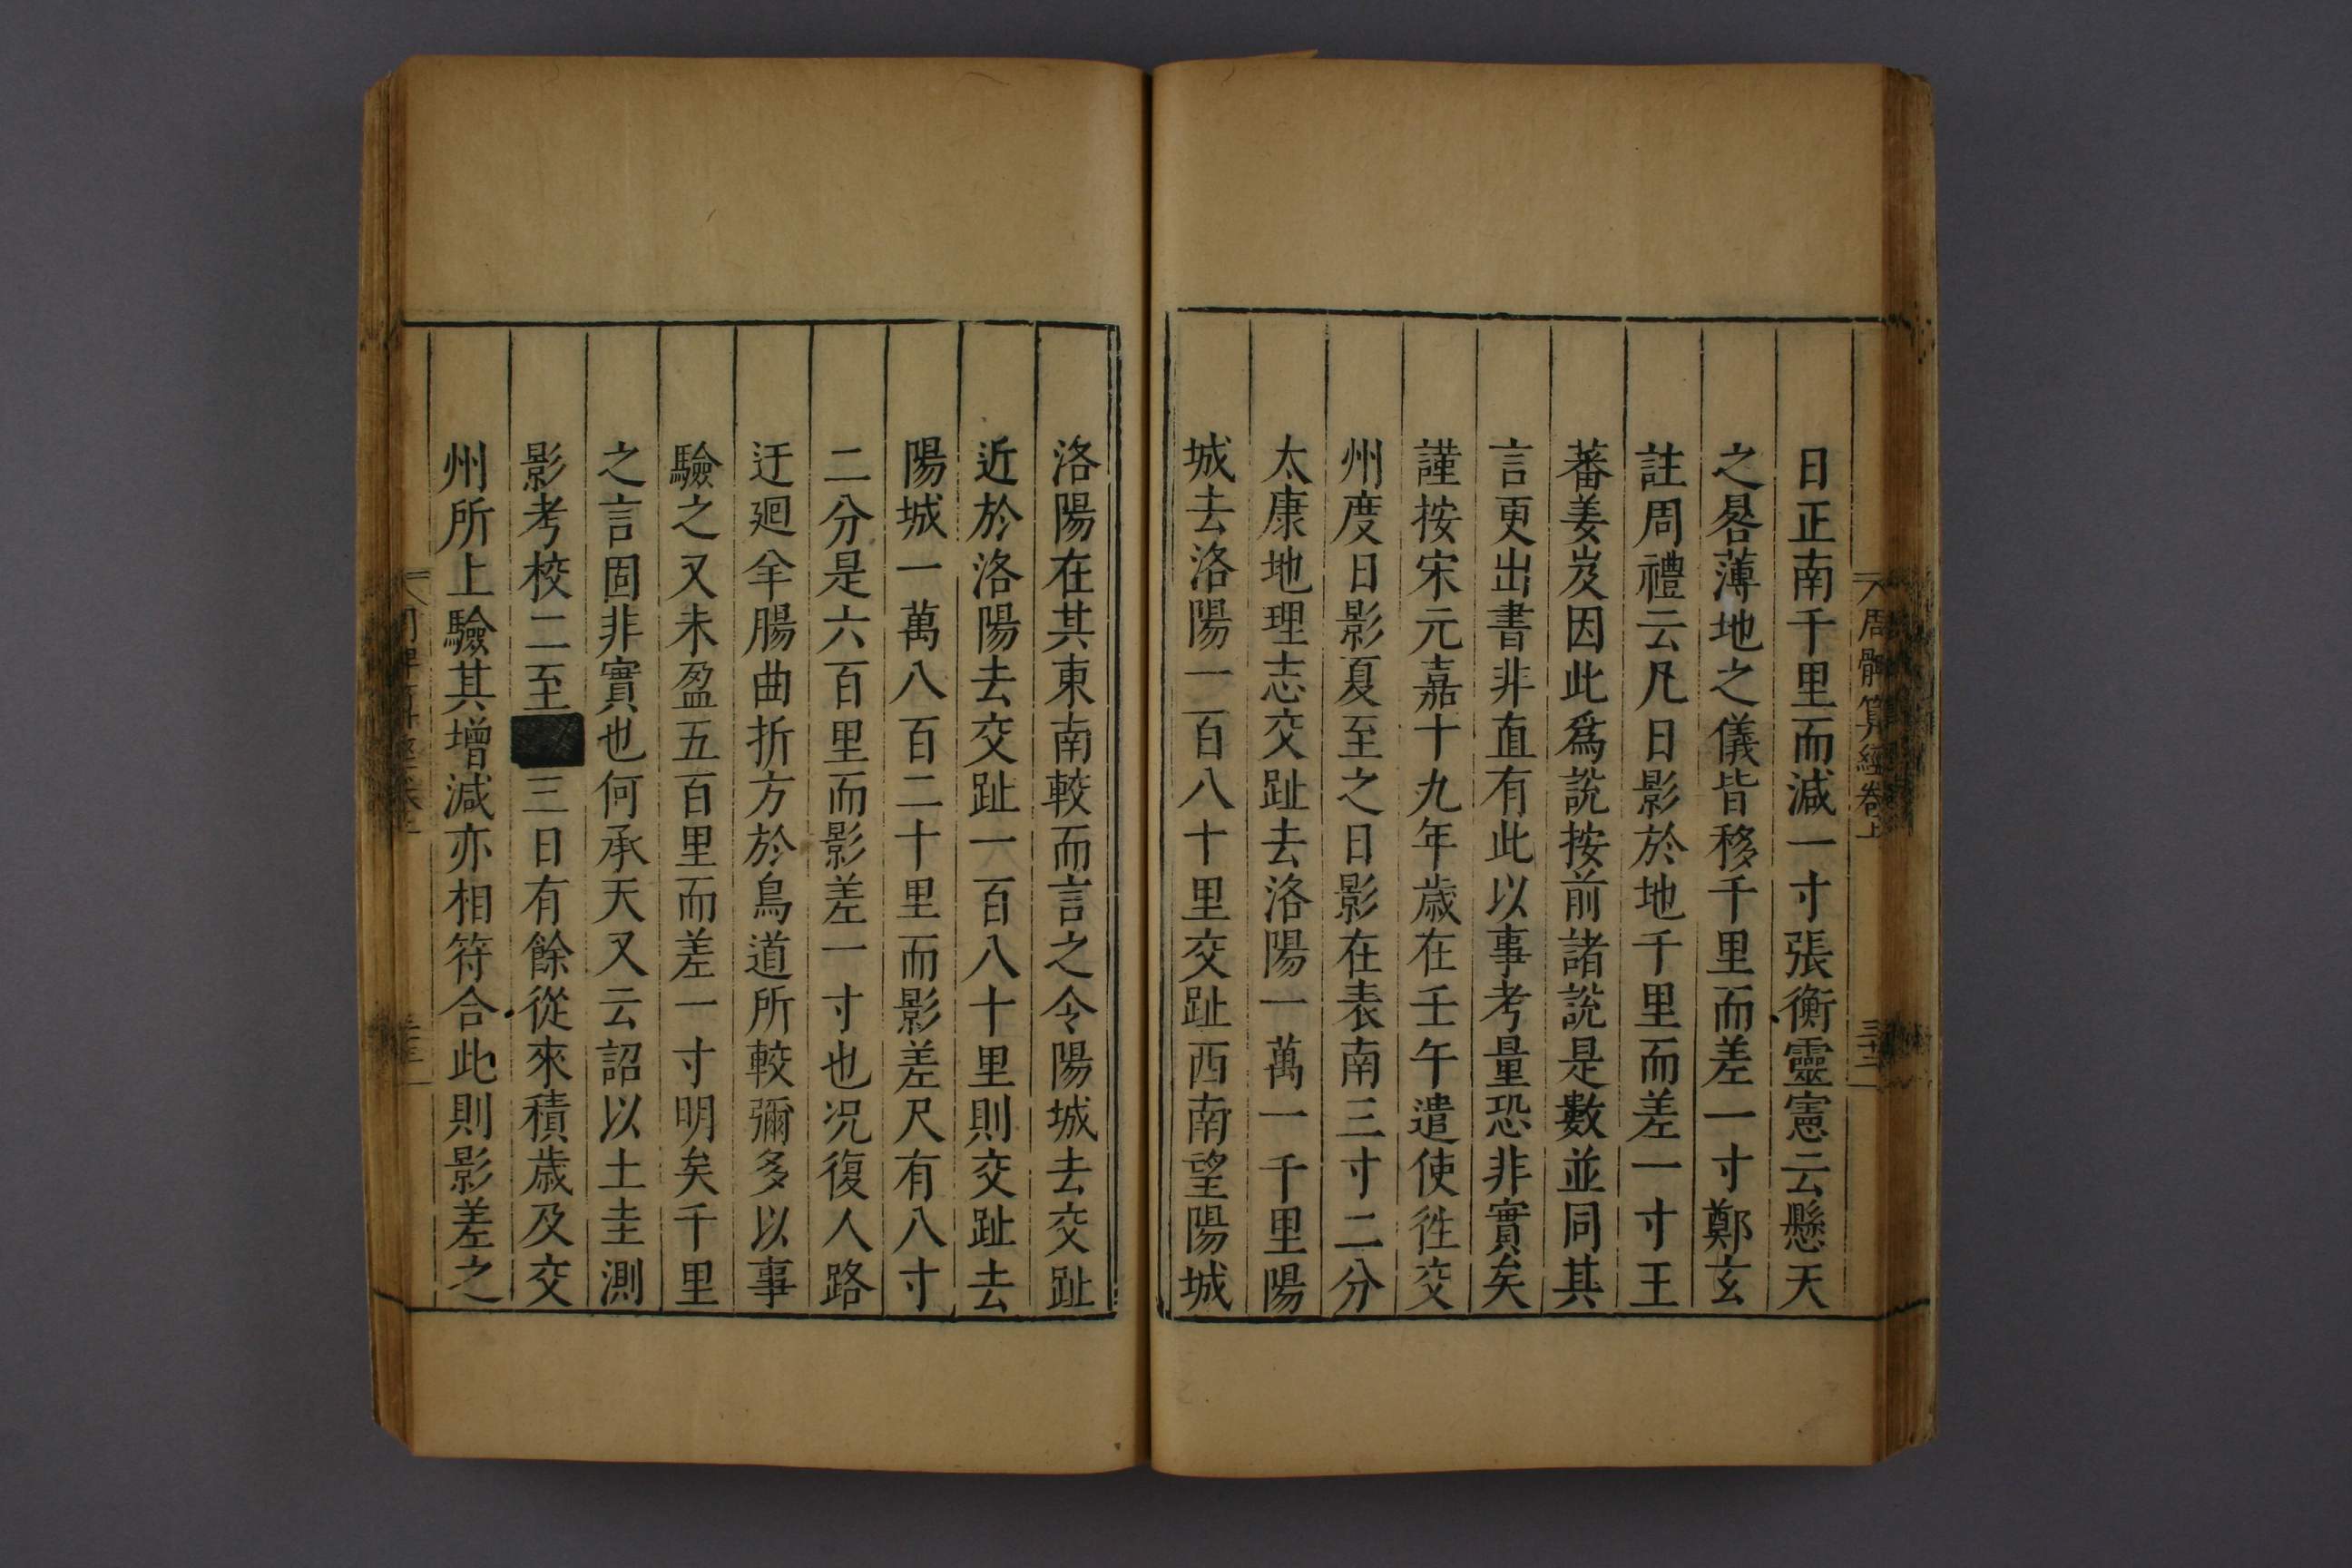 周髀算經卷上 三十二
日正南千里而減一寸張衡靈憲云懸天
之晷薄地之儀皆移千里而差一寸鄭玄
註周禮云凡日影於地千里而差一寸王
蕃姜岌因此爲說按前諸說是數並同其
言更出書非直有此以事考量恐非實矣
謹按宋元嘉十九年歲在壬午遣使徃交
州度日影夏至之日影在表南三寸二分
太康地理志交趾去洛陽一萬一千里陽
城去洛陽一百八十里交趾西南望陽城
洛陽在其東南較而言之令陽城去交趾
近於洛陽去交趾一百八十里則交趾去
陽城一萬八百二十里而影差尺有八寸
二分是六百里而影差一寸也況復人路
迂廻羊腸曲折方於鳥道所較彌多以事
驗之又未盈五百里而差一寸明矣千里
之言固非實也何承天又云詔以土圭測
影考校二至三日有餘從來積歲及交
州所上驗其增減亦相符合此則影差之